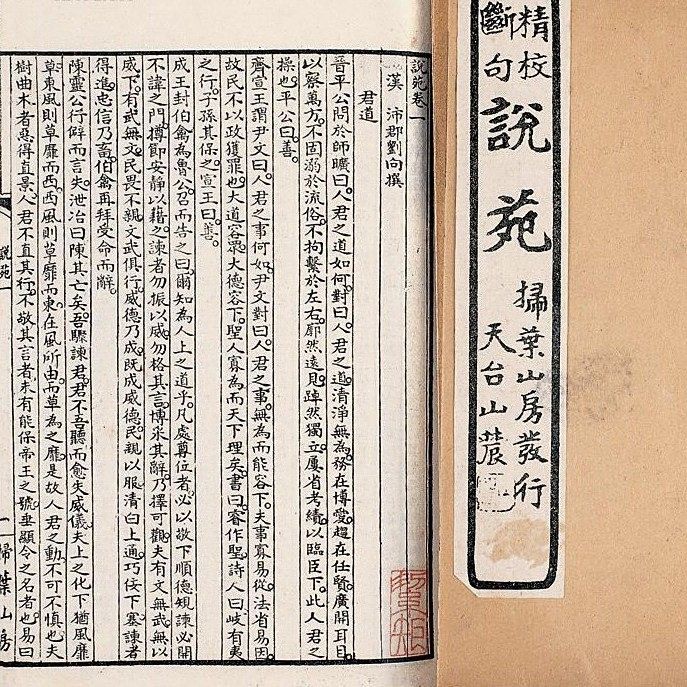 精校
斷句
說苑
掃葉山房發行
天台山農
說苑卷一
漢 沛郡劉向撰
君道
晉平公問於師曠曰。人君之道如何。對曰。人君之道。清淨無為。務在博愛。趨在任賢。廣開耳目。
以察萬方。不固溺於流俗。不拘繫於左右。廓然遠見。踔然獨立。屢省考績。以臨臣下。此人君之
操也。平公曰。善。
齊宣王謂尹文曰。人君之事何如。尹文對曰。人君之事。無為而能容下。夫事寡易從。法省易因。
故民不以政獲罪也。大道容眾。大德容下。聖人寡為而天下理矣。書曰。睿作聖。詩人曰。岐有夷
之行。子孫其保之。宣王曰。善。
成王封伯禽為魯公。召而告之曰。爾知為人上之道乎。凡處尊位者。必以敬下。順德規諫。必開
不諱之門。撙節安靜以藉之。諫者勿振以威。勿格其言。博采其辭。乃擇可觀。夫有文無武。無以
威下。有武無文。民畏不親。文武俱行。威德乃成。既成威德。民親以服。清白上通。巧佞下塞。諫者
得進。忠信乃畜。伯禽再拜受命而辭。
陳靈公行僻而言失。泄冶曰。陳其亡矣。吾驟諫君。君不吾聽。而愈失威儀。夫上之化下。猶風靡
草。東風則草靡而西。西風則草靡而東。在風所由。而草為之靡。是故人君之動。不可不慎也。夫
樹曲木者。惡得直景。人君不直其行。不敬其言者。未有能保帝王之號。垂顯令之名者也。易曰。
說苑一
一
掃葉山房